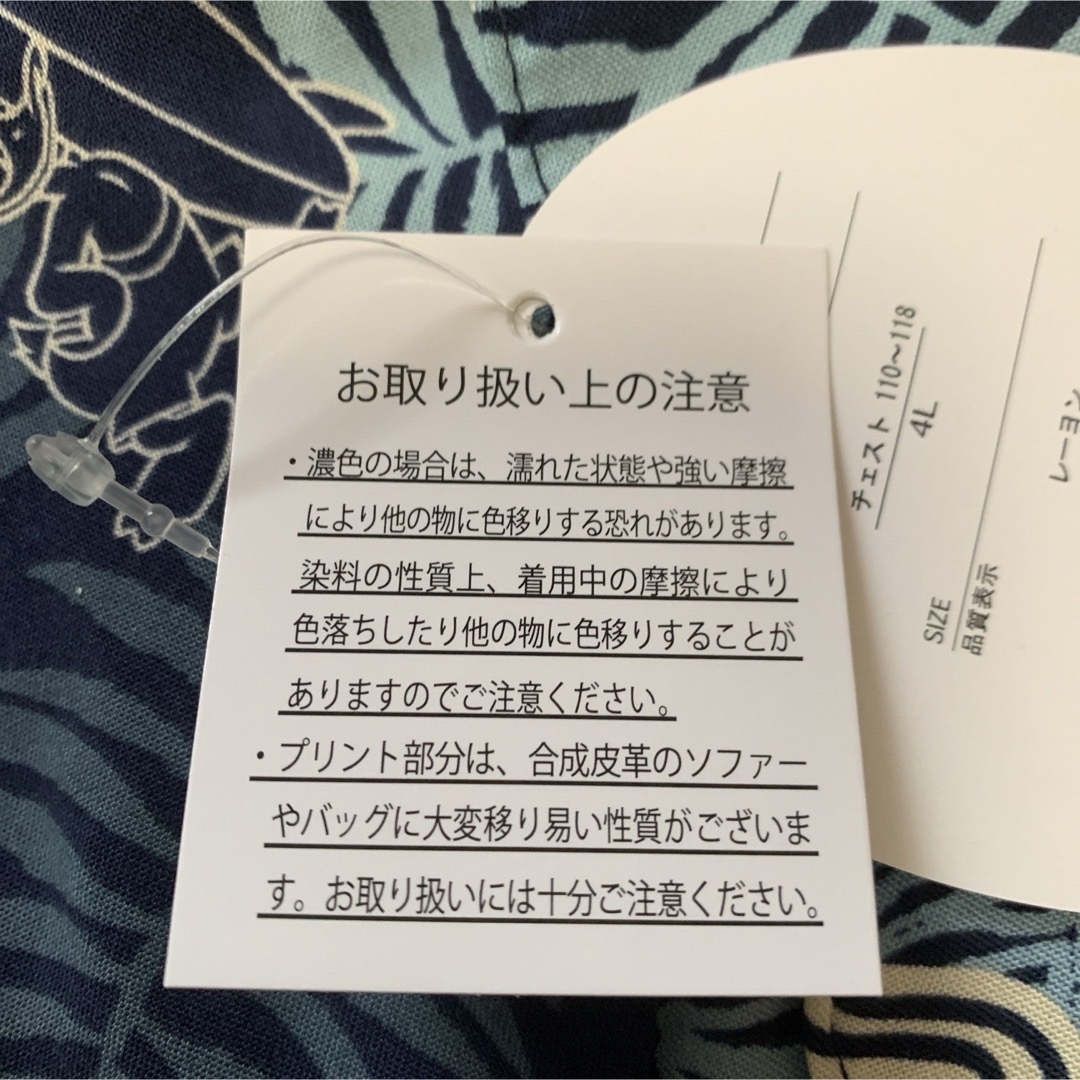 お取り扱い上の注意
・濃色の場合は、濡れた状態や強い摩擦
により他の物に色移りする恐れがあります。
染料の性質上、着用中の摩擦により
色落ちしたり他の物に色移りすることが
ありますのでご注意ください。
・プリント部分は、合成皮革のソファー
やバッグに大変移り易い性質がございま
す。お取り扱いには十分ご注意ください。
チェスト 110~118
4L
SIZE
品質表示
レーヨン